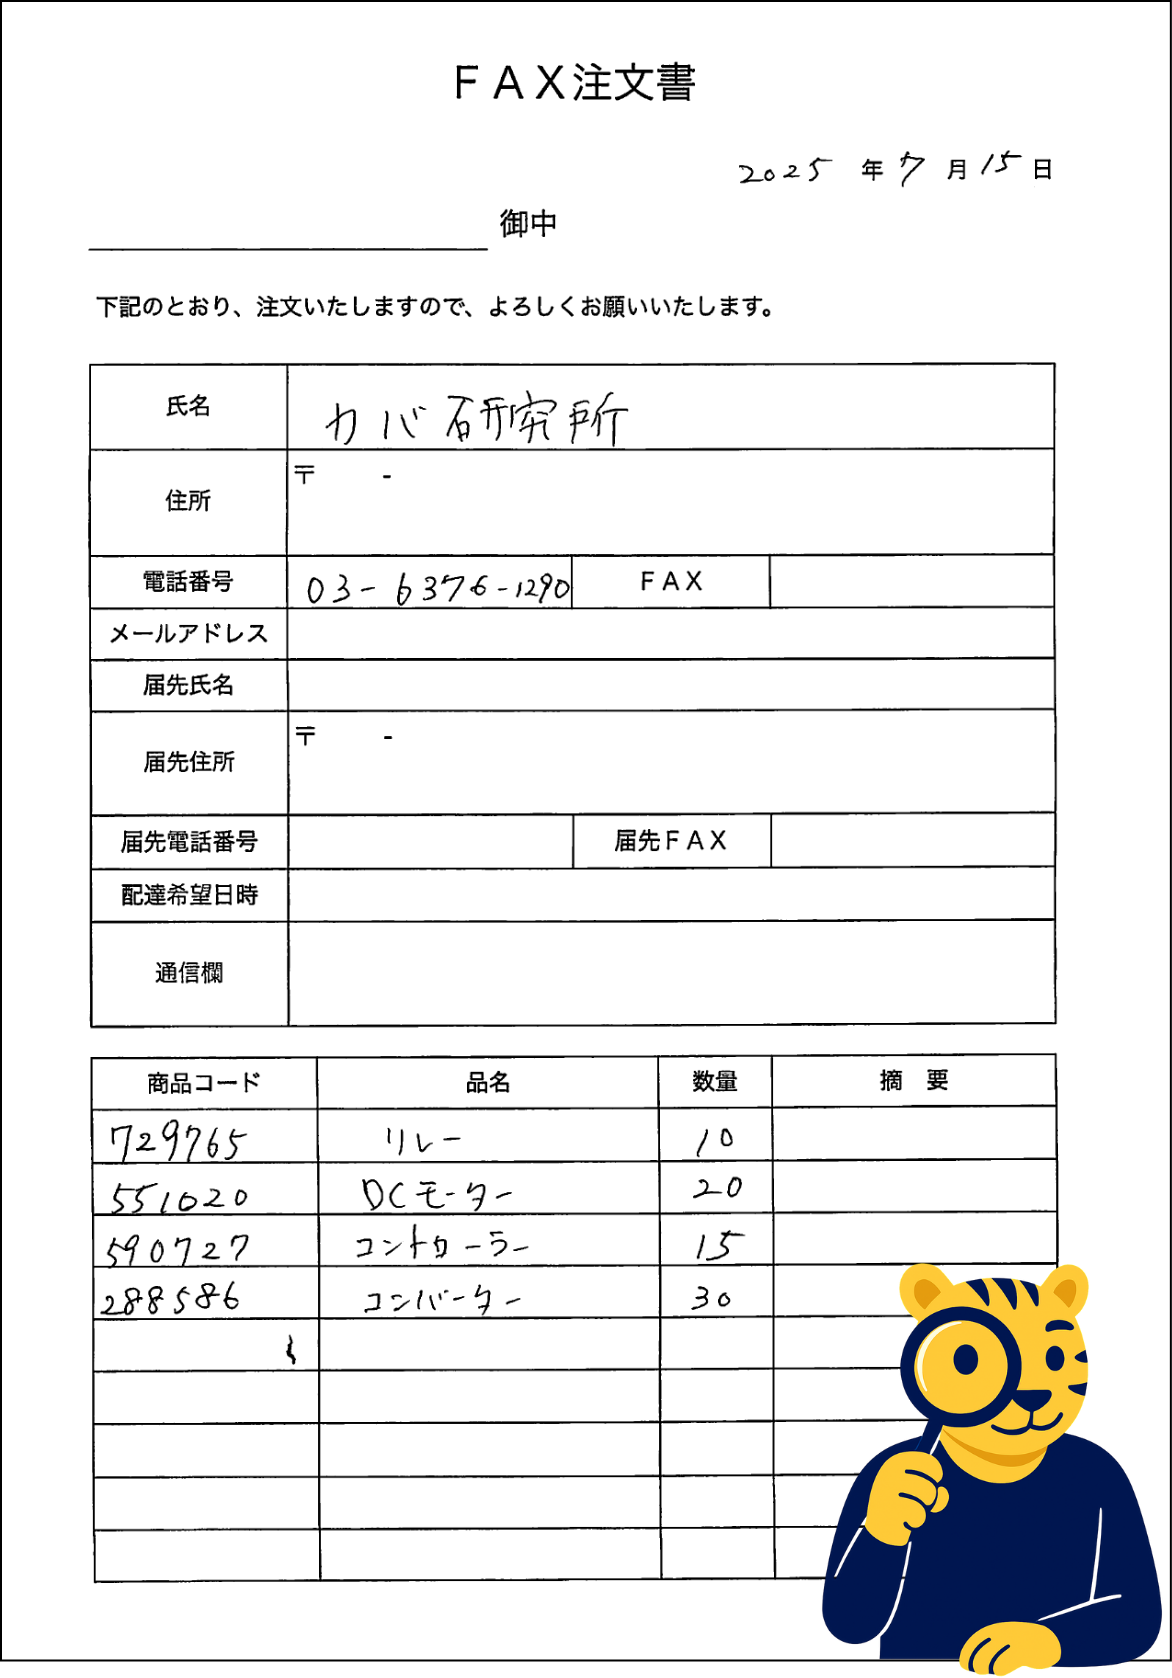 FAX注文書
2025 年 7 月 15 日
御中
下記のとおり、注文いたしますので、よろしくお願いいたします。
氏名 カバ研究所
住所 〒 -
電話番号 03-6376-1290 FAX
メールアドレス
届先氏名
届先住所 〒 -
届先電話番号 届先FAX
配達希望日時
通信欄
商品コード 品名 数量 摘 要
729765 リレー 10
551020 DCモーター 20
590727 コントローラー 15
288586 コンバーター 30